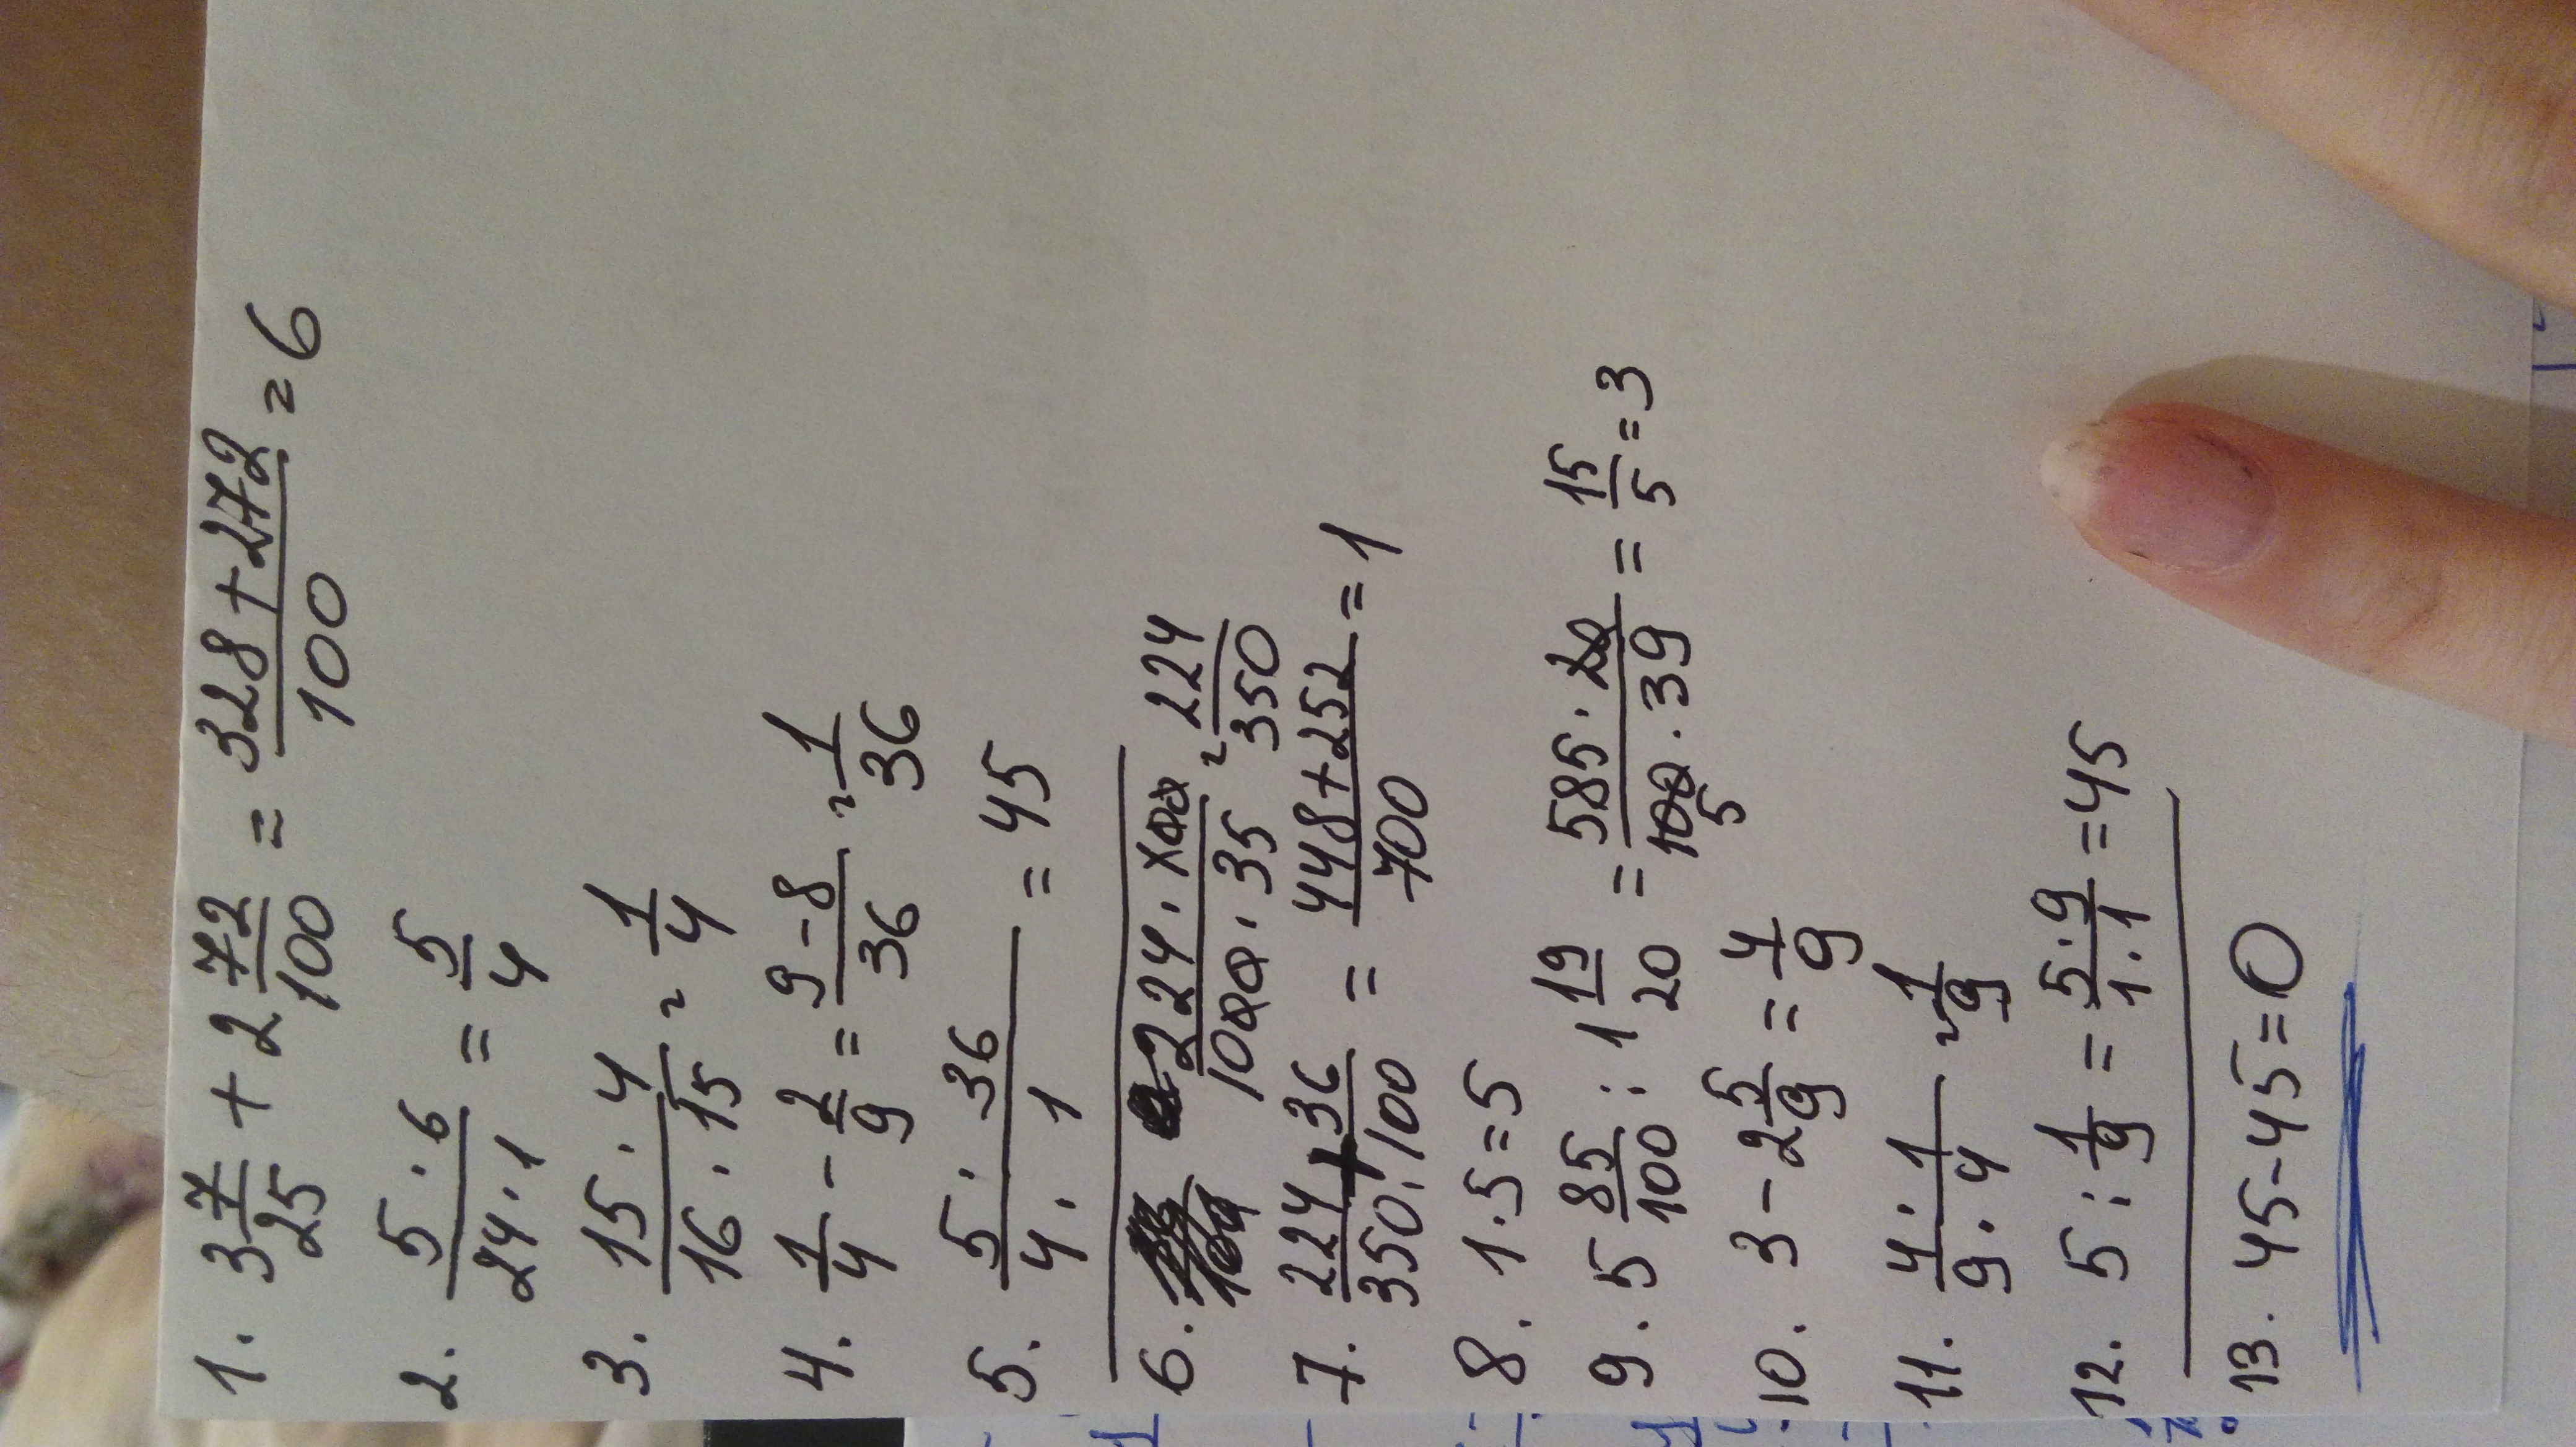 1. 3 7/25 + 2 72/100 = (328+272)/100 = 6
2. (5·6)/(24·1) = 5/4
3. (15·4)/(16·15) = 1/4
4. 1/4 - 2/9 = (9-8)/36 = 1/36
5. (5·36)/(4·1) = 45
6. (224·100)/(1000·35) = 224/350
7. 224/350 + 36/100 = (448+252)/700 = 1
8. 1·5=5
9. 5 85/100 : 1 19/20 = (585·20)/(100·39) = 15/5 = 3
5
10. 3 - 2 5/9 = 4/9
11. (4·1)/(9·4) = 1/9
12. 5 : 1/9 = (5·9)/(1·1) = 45
13. 45-45=0